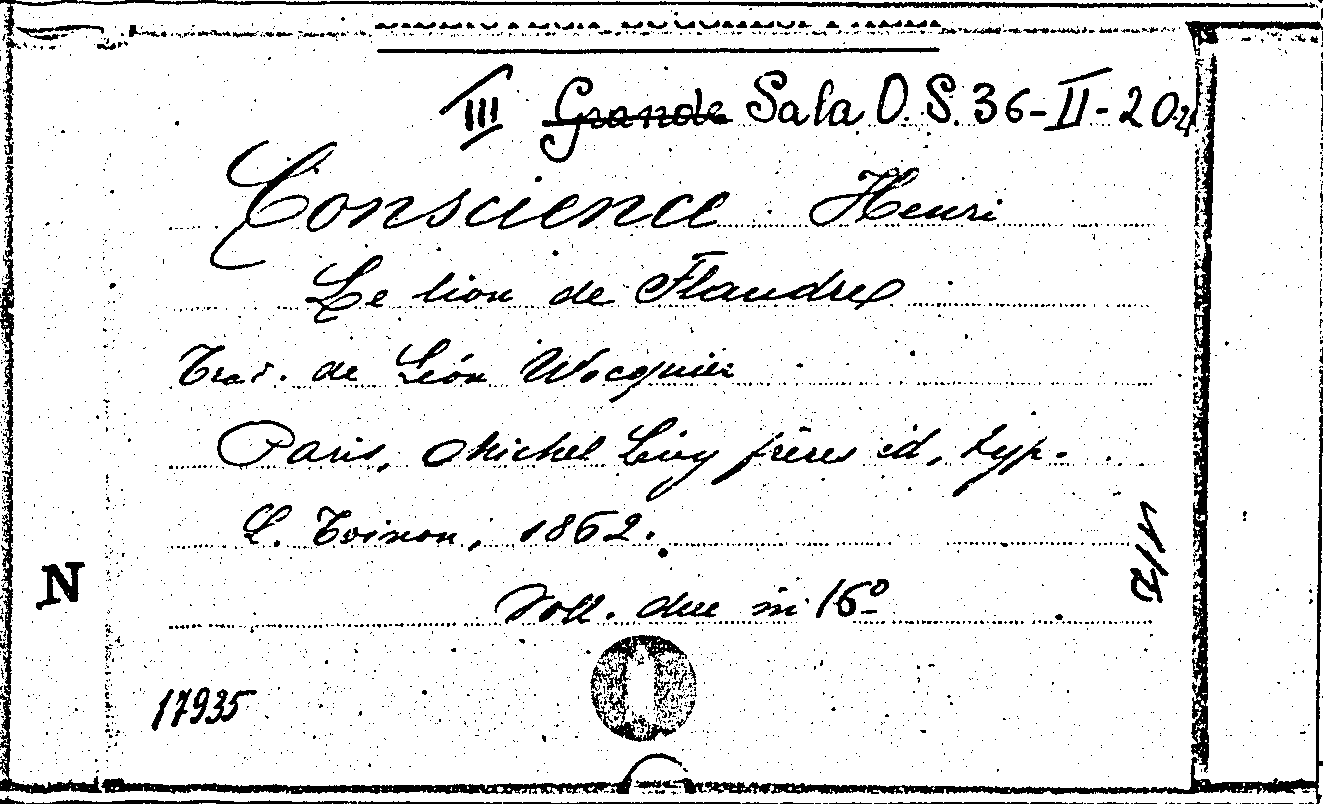 III Grande Sala O. S. 36-II-20
Conscience Henri
Le lion de Flandre
Trad. de Léon Wocquier
Paris, Michel Lévy frères éd, typ.
L. Toinon, 1862.
1/2
N
Voll. due in 16º
17935